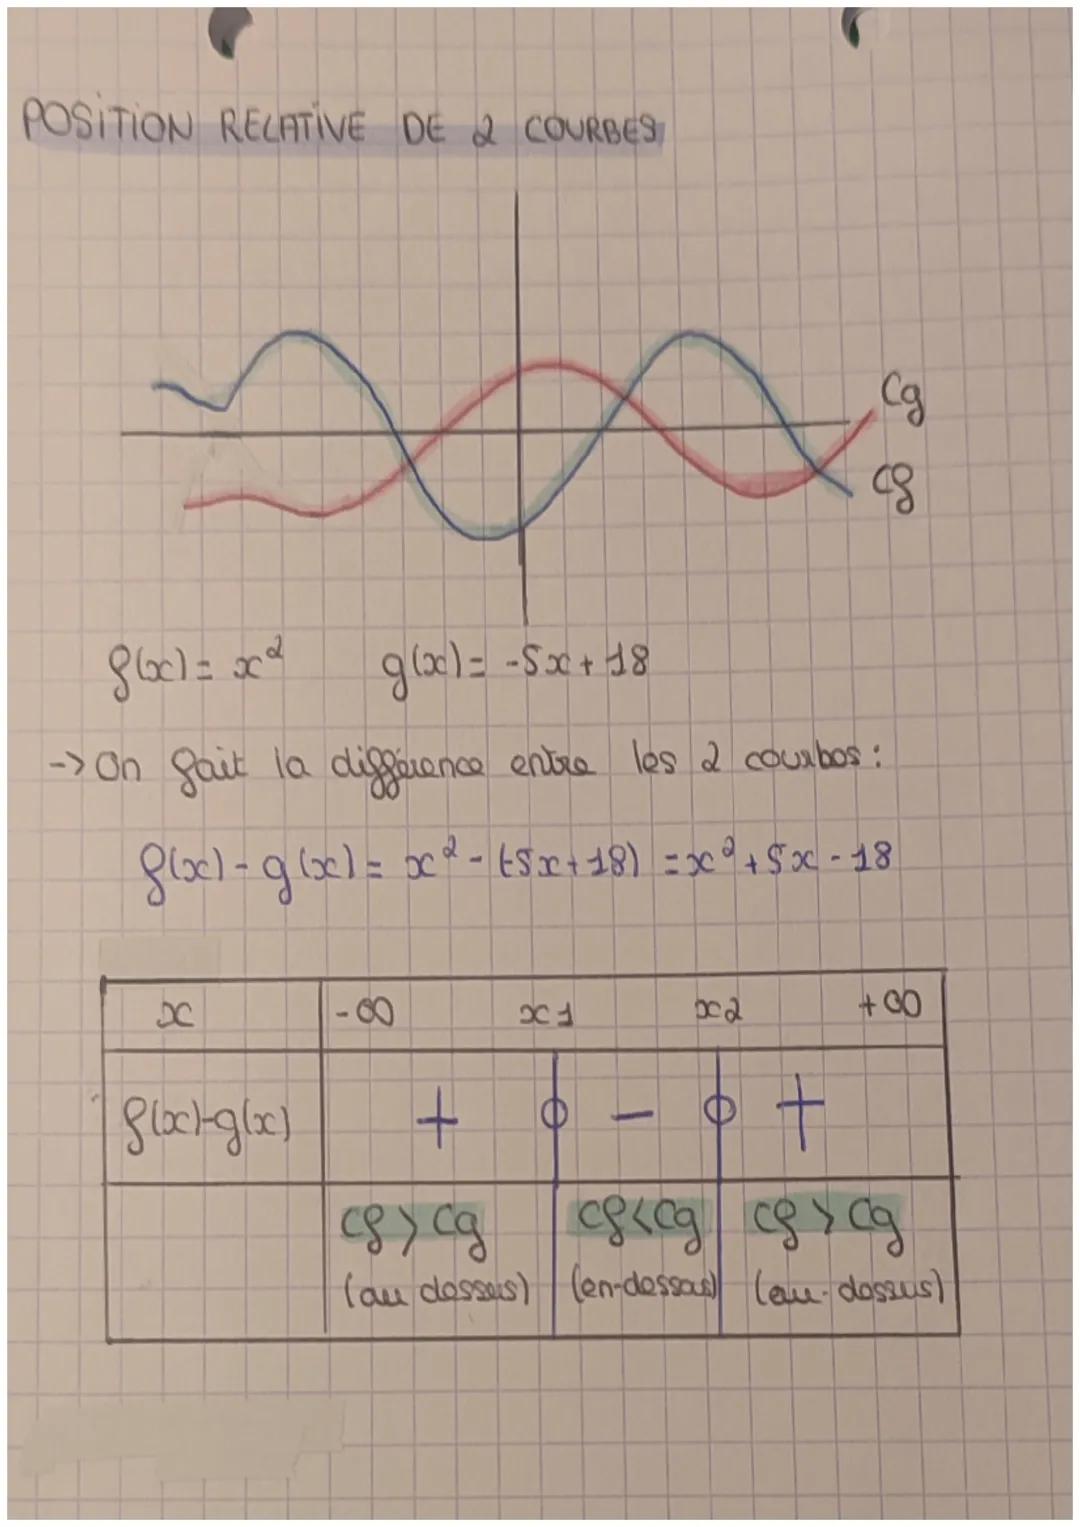 POSITION RELATIVE DE 2 COURBES
Cg
Cf
f(x) = x²    g(x) = -5x + 18
-> On fait la différence entre les 2 courbes :
f(x) - g(x) = x² - (-5x + 18) = x² + 5x - 18
x    -∞    x1    x2    +∞
f(x)-g(x)    +    0    -    0    +
Cf > Cg    Cf < Cg    Cf > Cg
(au dessus)    (en-dessous)    (au-dessus)